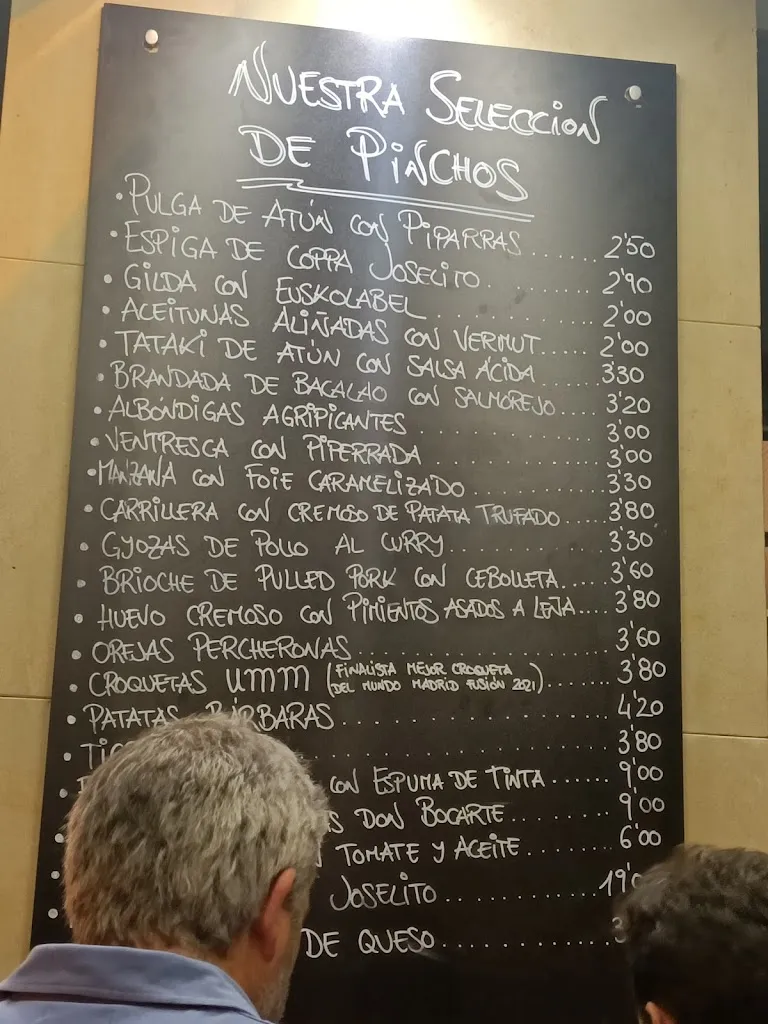 NUESTRA SELECCION
DE PINCHOS
• PULGA DE ATÚN CON PIPARRAS ...... 2'50
• ESPIGA DE COPPA JOSELITO ...... 2'90
• GILDA CON EUSKOLABEL ...... 2'00
• ACEITUNAS ALIÑADAS CON VERMUT ...... 2'00
• TATAKI DE ATÚN CON SALSA ÁCIDA ...... 3'30
• BRANDADA DE BACALAO CON SALMOREJO ...... 3'20
• ALBÓNDIGAS AGRIPICANTES ...... 3'00
• VENTRESCA CON PIPERRADA ...... 3'00
• MANZANA CON FOIE CARAMELIZADO ...... 3'30
• CARRILLERA CON CREMOSO DE PATATA TRUFADO ...... 3'80
• GYOZAS DE POLLO AL CURRY ...... 3'30
• BRIOCHE DE PULLED PORK CON CEBOLLETA ...... 3'60
• HUEVO CREMOSO CON PIMIENTOS ASADOS A LEÑA .... 3'80
• OREJAS PERCHERONAS ...... 3'60
• CROQUETAS UMM (FINALISTA MEJOR CROQUETA DEL MUNDO MADRID FUSIÓN 2021) ...... 3'80
• PATATAS BÁRBARAS ...... 4'20
• ...... 3'80
• CON ESPUMA DE TINTA ...... 9'00
• DON BOCARTE ...... 9'00
• TOMATE Y ACEITE ...... 6'00
• JOSELITO ......
• DE QUESO ......